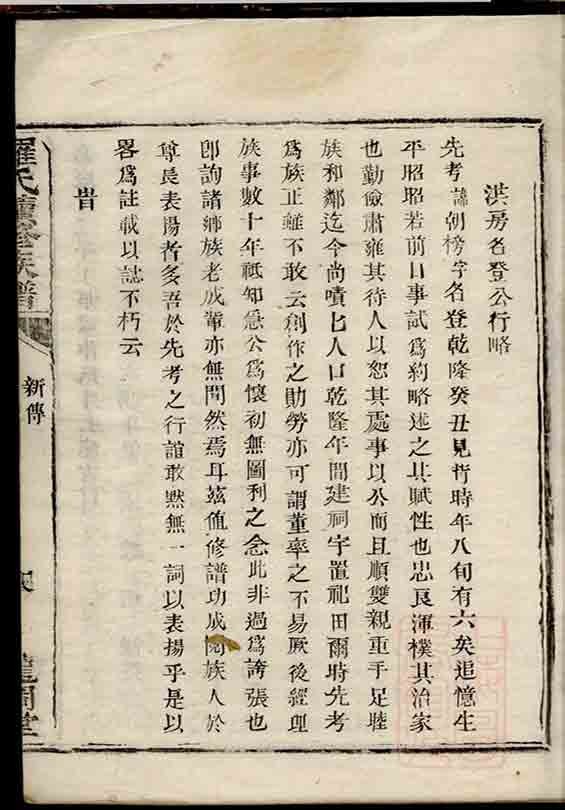 洪房名登公行略
先考諱朝榜字名登乾隆癸丑見背時年八旬有六矣追憶生
平昭昭若前日事試為約略述之其賦性也忠良渾樸其治家
也勤儉肅雍其待人以恕其處事以公而且順雙親重手足睦
族和鄰迄今尚嘖匕人口乾隆年間建祠宇置祀田爾時先考
為族正雖不敢云創作之助勞亦可謂董率之不易厥後經理
族事數十年祗知急公為懷初無圖利之念此非過為誇張也
即詢諸鄉族老成輩亦無間然焉耳茲值修譜功成闔族人於
尊長表揚者多吾於先考之行誼敢默無一詞以表揚乎是以
畧為註載以誌不朽云
旹
氏
族譜
新傳
堂